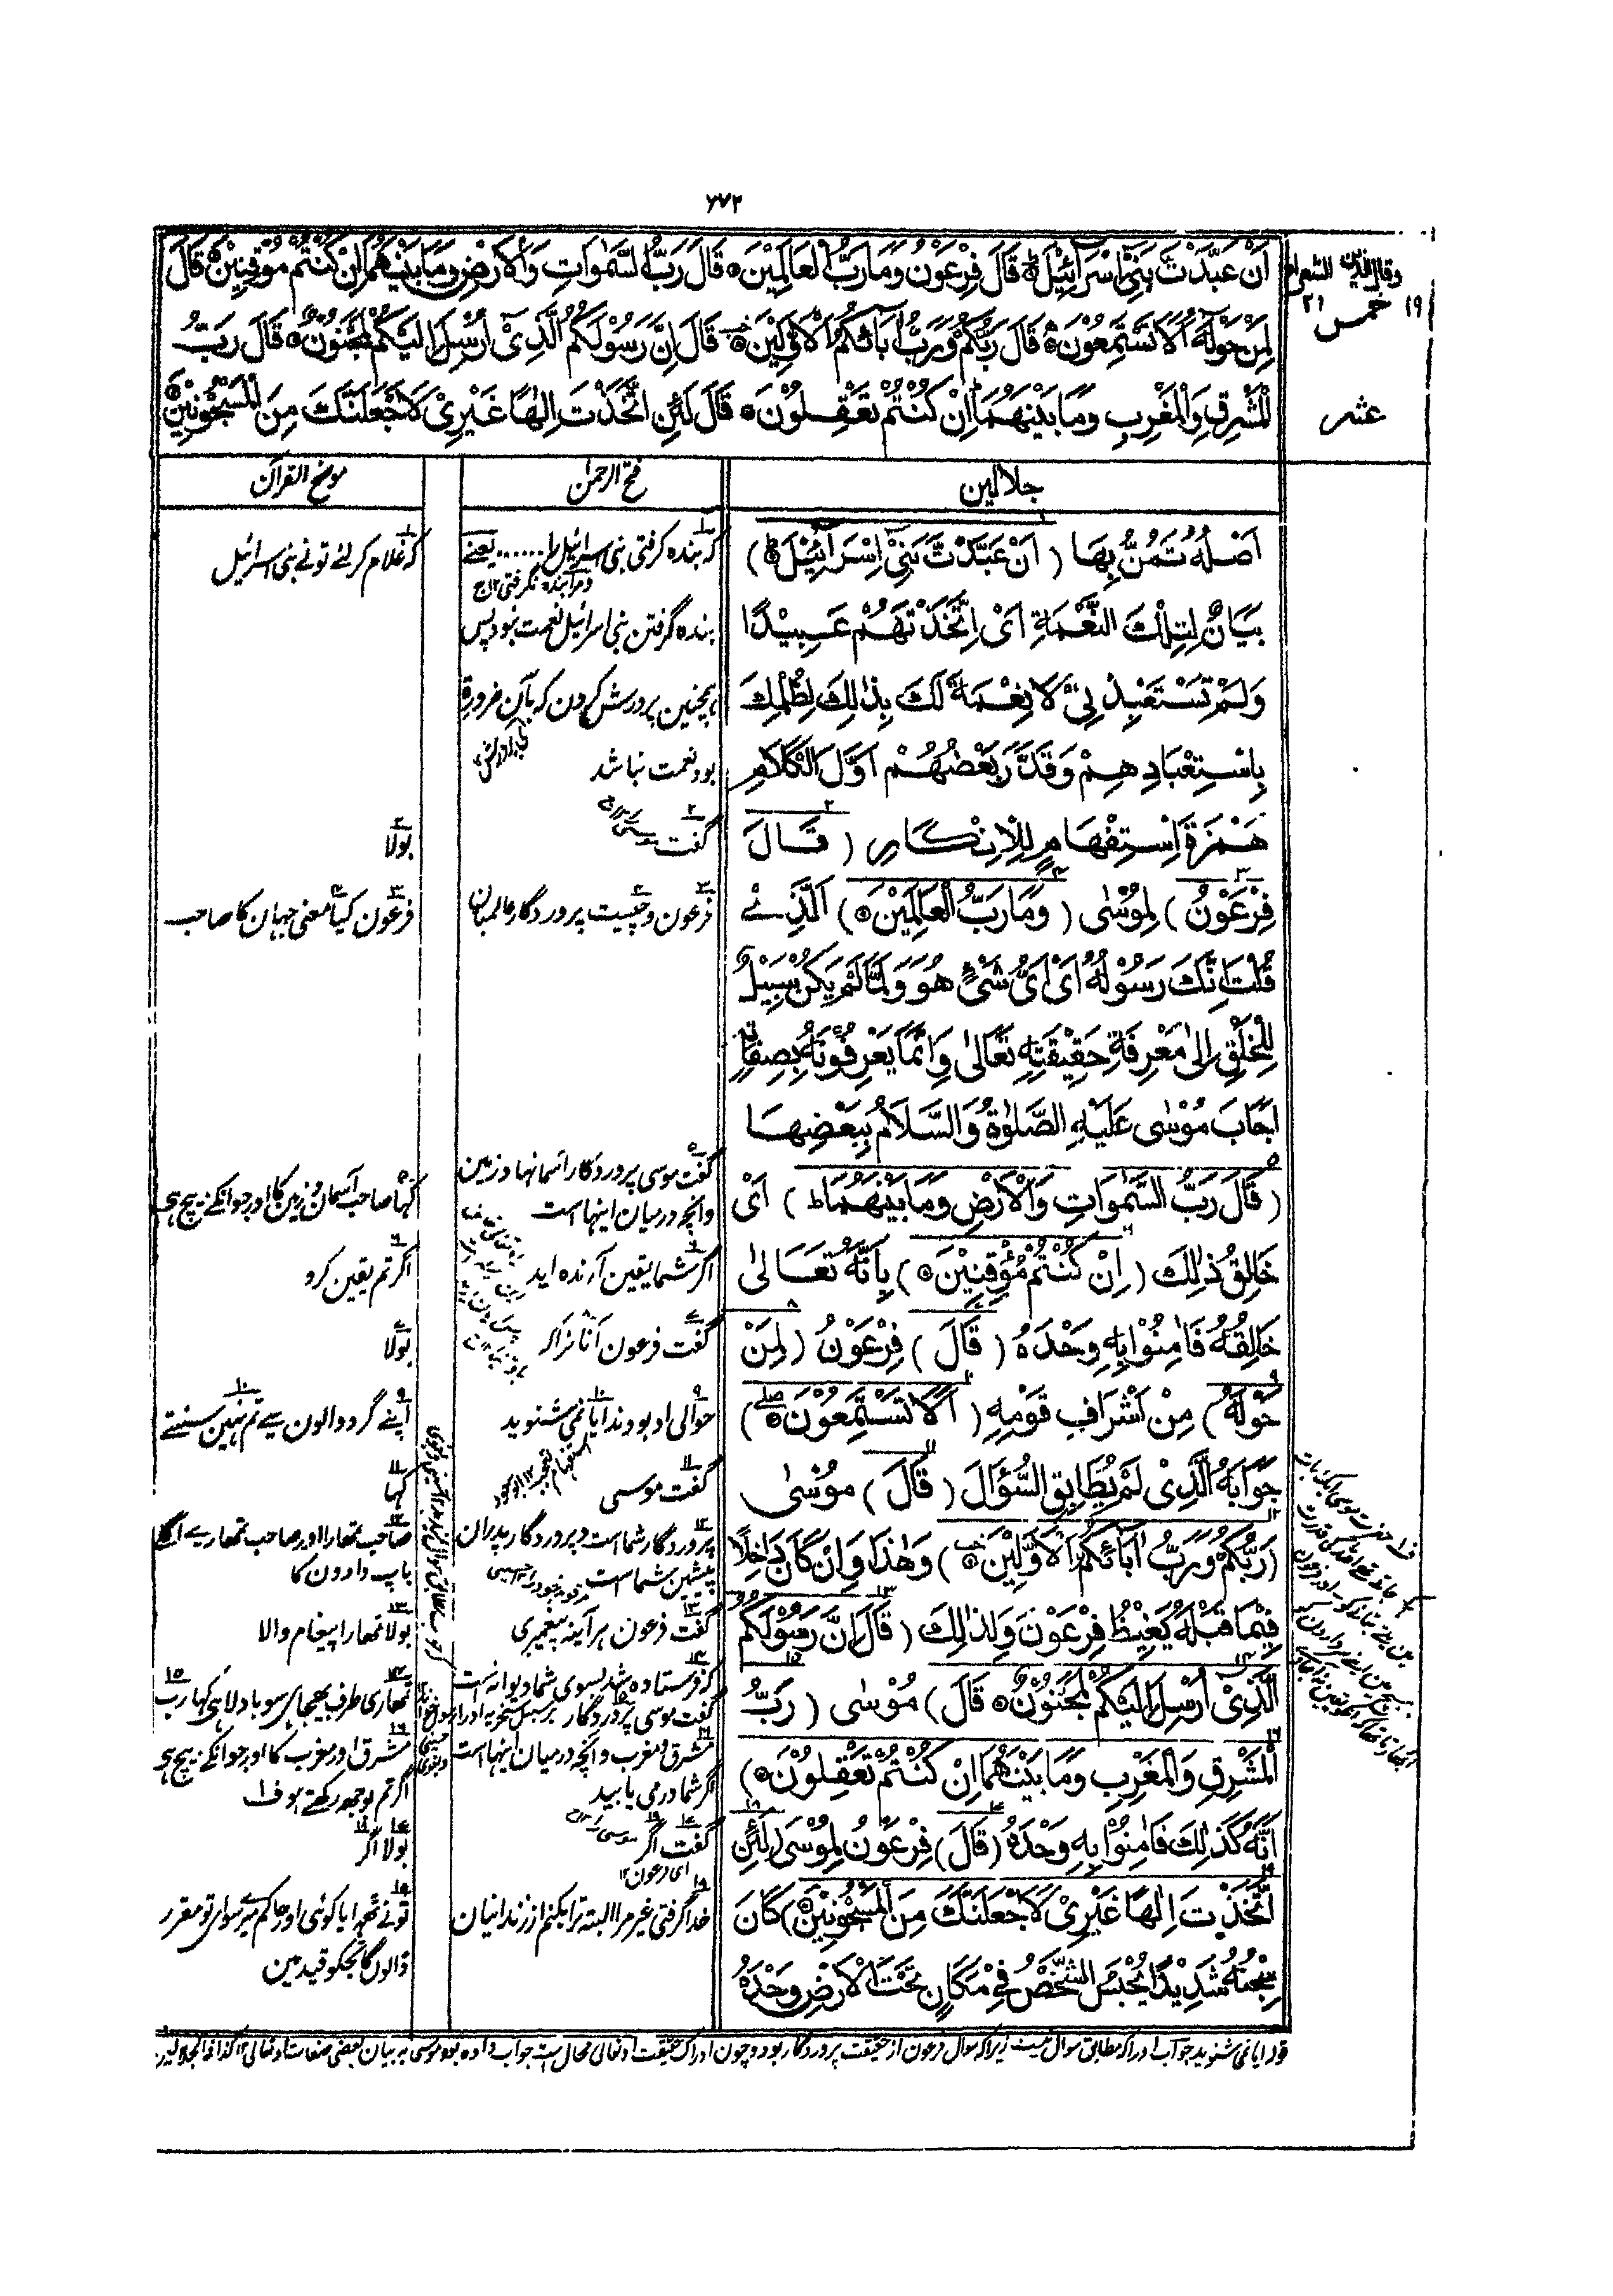 ۶۷۲
وقال الذين
الشعراء
١٩
خمس
٢١
عشر
اَنْ عَبَّدْتَّ بَنِيْٓ اِسْرَآئِيْلَ ؕ قَالَ فِرْعَوْنُ وَمَا رَبُّ الْعٰلَمِيْنَ ۝ قَالَ رَبُّ السَّمٰوٰتِ وَالْاَرْضِ وَمَا بَيْنَهُمَا اِنْ كُنْتُمْ مُّوْقِنِيْنَ ۝ قَالَ
لِمَنْ حَوْلَهٗٓ اَلَا تَسْتَمِعُوْنَ ۝ قَالَ رَبُّكُمْ وَرَبُّ اٰبَآئِكُمُ الْاَوَّلِيْنَ ۝ قَالَ اِنَّ رَسُوْلَكُمُ الَّذِيْٓ اُرْسِلَ اِلَيْكُمْ لَمَجْنُوْنٌ ۝ قَالَ رَبُّ
الْمَشْرِقِ وَالْمَغْرِبِ وَمَا بَيْنَهُمَا اِنْ كُنْتُمْ تَعْقِلُوْنَ ۝ قَالَ لَئِنِ اتَّخَذْتَ اِلٰهًا غَيْرِيْ لَاَجْعَلَنَّكَ مِنَ الْمَسْجُوْنِيْنَ ۝
جلالين
اَصْلُهٗ تَمُنُّ بِهَا (اَنْ عَبَّدْتَّ بَنِيْٓ اِسْرَآئِيْلَ ؕ)
بَيَانٌ لِتِلْكَ النِّعْمَةِ اَیْ اِتَّخَذْتَهُمْ عَبِيْدًا
وَلَمْ تَسْتَعْبِدْنِيْ لَا نِعْمَةَ لَكَ بِذٰلِكَ لِظُلْمِكَ
بِاسْتِعْبَادِهِمْ وَقَدَّرَ بَعْضُهُمْ اَوَّلَ الْكَلَامِ
هَمْزَةَ اِسْتِفْهَامٍ لِلْاِنْكَارِ (قَالَ
فِرْعَوْنُ) لِمُوْسٰى (وَمَا رَبُّ الْعٰلَمِيْنَ ۝) اَلَّذِيْ
قُلْتَ اِنَّكَ رَسُوْلُهٗ اَیْ اَیُّ شَیْءٍ هُوَ وَلَمَّا لَمْ يَكُنْ سَبِيْلٌ
لِلْخَلْقِ اِلٰى مَعْرِفَةِ حَقِيْقَتِهٖ تَعَالٰى وَاِنَّمَا يَعْرِفُوْنَهٗ بِصِفَاتِهٖ
اَجَابَ مُوْسٰى عَلَيْهِ الصَّلٰوةُ وَالسَّلَامُ بِبَعْضِهَا
(قَالَ رَبُّ السَّمٰوَاتِ وَالْاَرْضِ وَمَا بَيْنَهُمَا ط) اَیْ
خَالِقُ ذٰلِكَ (اِنْ كُنْتُمْ مُّوْقِنِيْنَ ۝) بِاَنَّهٗ تَعَالٰى
خَالِقُهٗ فَاٰمِنُوْا بِهٖ وَحْدَهٗ (قَالَ) فِرْعَوْنُ (لِمَنْ
حَوْلَهٗ) مِنْ اَشْرَافِ قَوْمِهٖ (اَلَا تَسْتَمِعُوْنَ ۝)
جَوَابَهُ الَّذِيْ لَمْ يُطَابِقِ السُّؤَالَ (قَالَ) مُوْسٰى
(رَبُّكُمْ وَرَبُّ اٰبَآئِكُمُ الْاَوَّلِيْنَ ۝) وَهٰذَا وَاِنْ كَانَ دَاخِلًا
فِيْمَا قَبْلَهٗ يُغِيْظُ فِرْعَوْنَ وَلِذٰلِكَ (قَالَ اِنَّ رَسُوْلَكُمُ
الَّذِيْٓ اُرْسِلَ اِلَيْكُمْ لَمَجْنُوْنٌ ۝ قَالَ) مُوْسٰى (رَبُّ
الْمَشْرِقِ وَالْمَغْرِبِ وَمَا بَيْنَهُمَا اِنْ كُنْتُمْ تَعْقِلُوْنَ ۝)
اَنَّهٗ كَذٰلِكَ فَاٰمِنُوْا بِهٖ وَحْدَهٗ (قَالَ) فِرْعَوْنُ لِمُوْسٰى (لَئِنِ
اتَّخَذْتَ اِلٰهًا غَيْرِيْ لَاَجْعَلَنَّكَ مِنَ الْمَسْجُوْنِيْنَ ۝) كَانَ
سِجْنُهٗ شَدِيْدًا يَحْبِسُ الشَّخْصَ فِيْ مَكَانٍ تَحْتَ الْاَرْضِ وَحْدَهٗ
فتح الرحمن
که بنده گرفتی بنی اسرائیل را ...... یعنے
ومرا بنده نگرفتی ۱۲ ج
بنده گرفتن بنی اسرائیل نعمت نبود پس
همچنین پرورش کردن که بآن ضرورة
بود نعمت نباشد
گفت
فرعون وچیست پروردگار عالمیان
گفت موسی پروردگار آسمانها و زمین
وانچه درمیان اینها است
اگر شما یقین آرنده اید
گفت فرعون آنانرا که
حوالی او بودند ایا نمی شنوید
گفت موسی
پروردگار شما است و پروردگار پدران
پیشین شما است
گفت فرعون هر آینه پیغمبری
که فرستاده شد بسوی شما دیوانه است
گفت موسی پروردگار
مشرق ومغرب وانچه درمیان اینها است
اگر شما درمی یابید
گفت اگر
ای فرعون ۱۲
خدا گرفتی غیر مرا البته ترا بکنم از زندانیان
موضح القرآن
که غلام کر لئے تونے بنی اسرائیل
بولا
فرعون کیا معنی جہان کا صاحب
کہا صاحب آسمان وزمین کا اور جو انکے بیچ ہی
اگر تم یقین کرو
بولا
اپنے گرد والون سے تم نہین سنتے
کہا
صاحب تمھارا اور صاحب تمھارے اگلے
باپ دادون کا
بولا تمھارا پیغام والا
تمھاری طرف بھیجا ہی سو باولا ہی کہا رب
مشرق اور مغرب کا اور جو انکے بیچ ہی
اگر تم بوجھ رکھتے ہو ف۱
بولا اگر
تونے ٹھہرایا کوئی اور حاکم میرے سوای تو مقرر
ڈالون گا تجکو قید مین
قوله ایا نمی شنوید جواب اورا که مطابق سوال نیست زیرا که سوال فرعون از حقیقت پروردگار بود و چون ادراک حقیقت او تعالی محال است جواب داده بود موسی به بیان بعضی صفات او تعالی ۱۲ کذا فی الجلالین